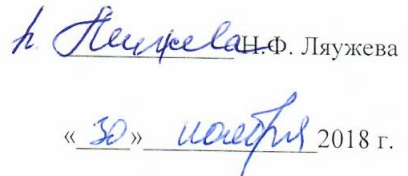 Н.Ф. Ляужева
«30» ноября 2018 г.